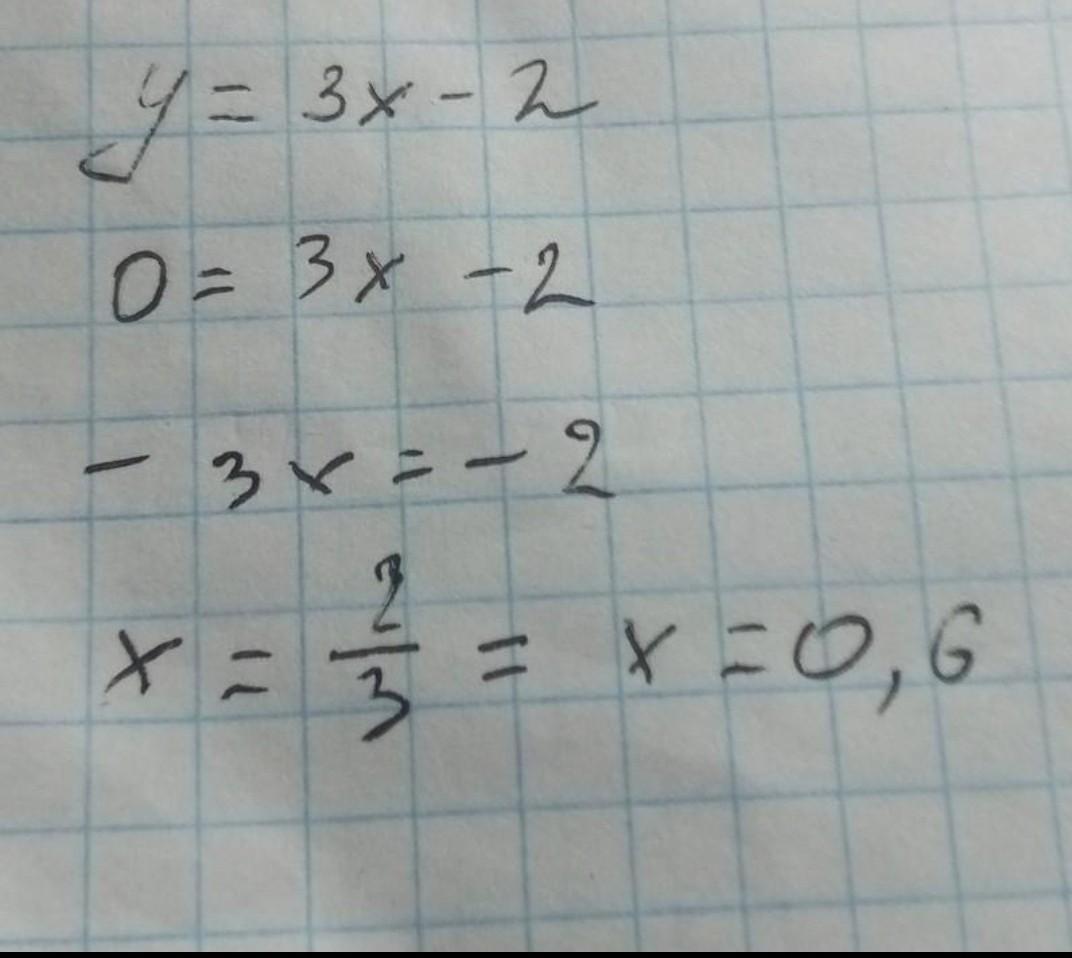 y = 3x - 2
0 = 3x - 2
- 3x = - 2
x = 2/3 = x = 0,6